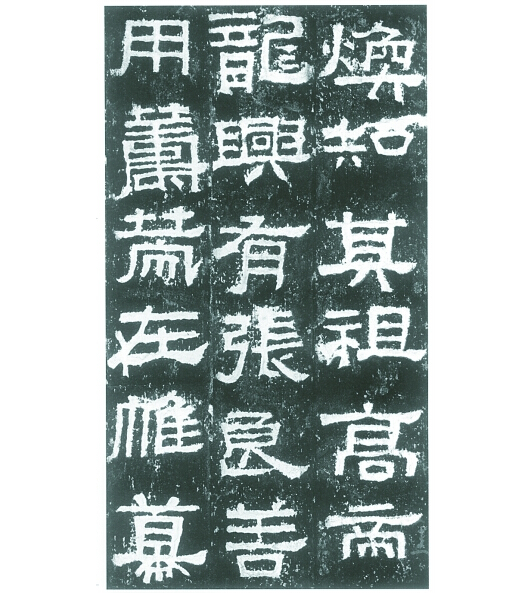 煥知其祖高帝
龍興有張良善
用籌策在帷幕